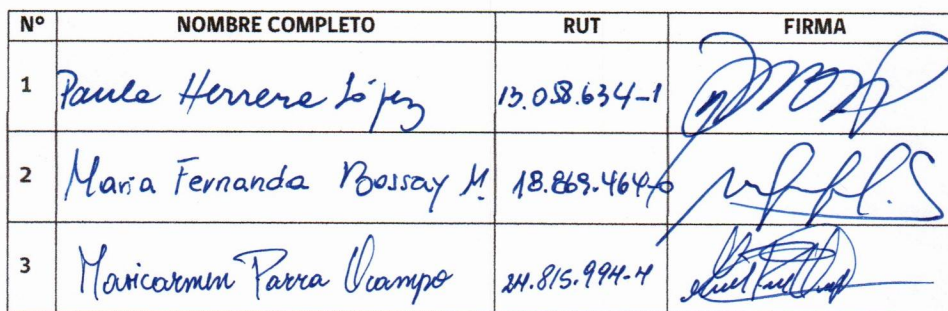 Nº NOMBRE COMPLETO RUT FIRMA
1 Paula Herrera López 13.058.634-1
2 Maria Fernanda Bossay M. 18.869.464-0
3 Maricarmen Parra Ocampo 24.815.994-4